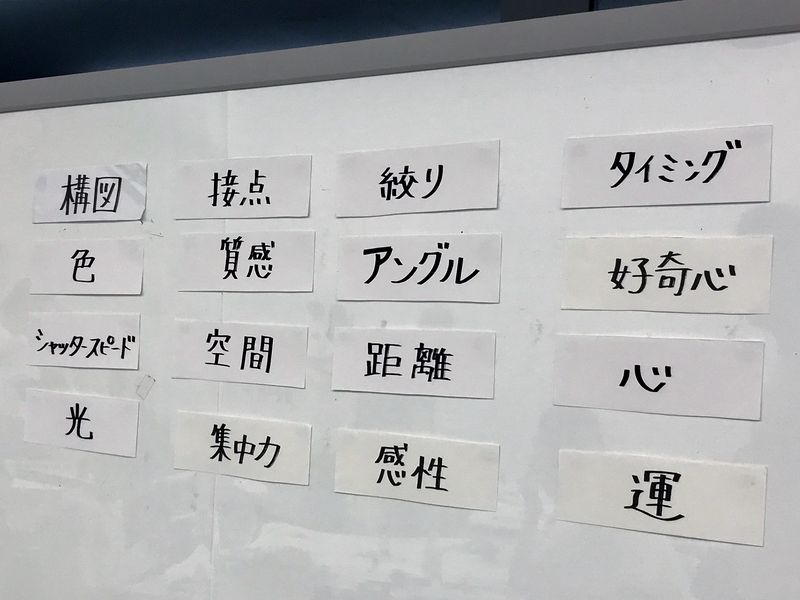 構図
色
シャッタースピード
光
接点
質感
空間
集中力
絞り
アングル
距離
感性
タイミング
好奇心
心
運